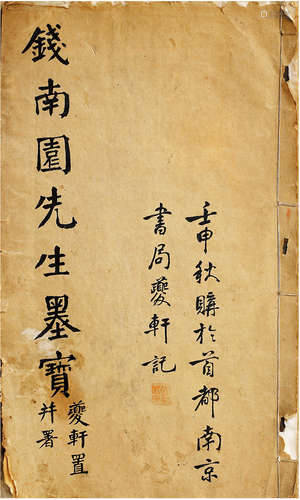 錢南園先生墨寶
夔軒置
并署
壬申秋購於首都南京
書局夔軒記